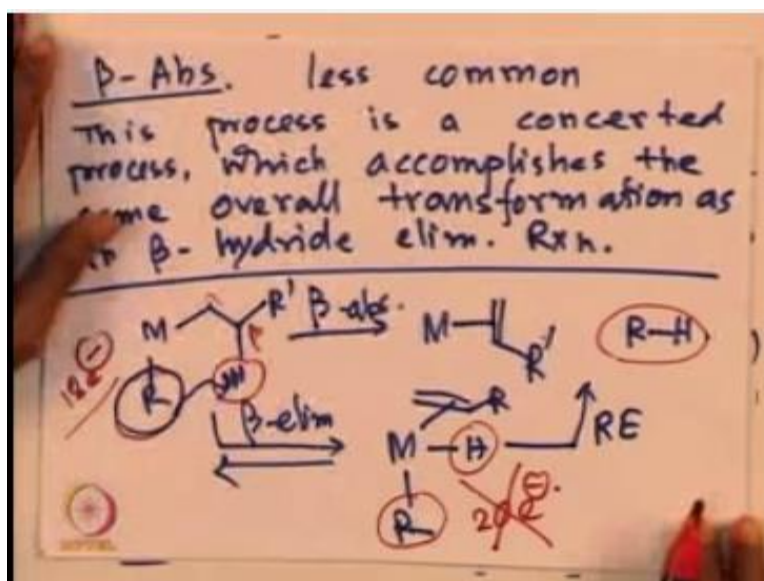 β-Abs. less common
This process is a concerted
process, which accomplishes the
same overall transformation as
in β-hydride elim. Rxn.
M R' β-abs. M R' R-H
18e⊖ R H
β-elim
R
M-H RE
R 20e⊖.
NPTEL